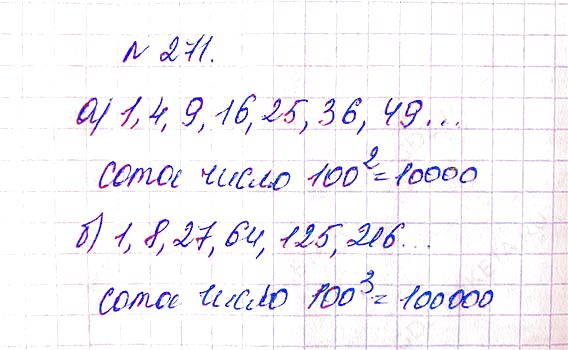 № 271.
а) 1, 4, 9, 16, 25, 36, 49...
сотое число 100² = 10000
б) 1, 8, 27, 64, 125, 216...
сотое число 100³ = 100000